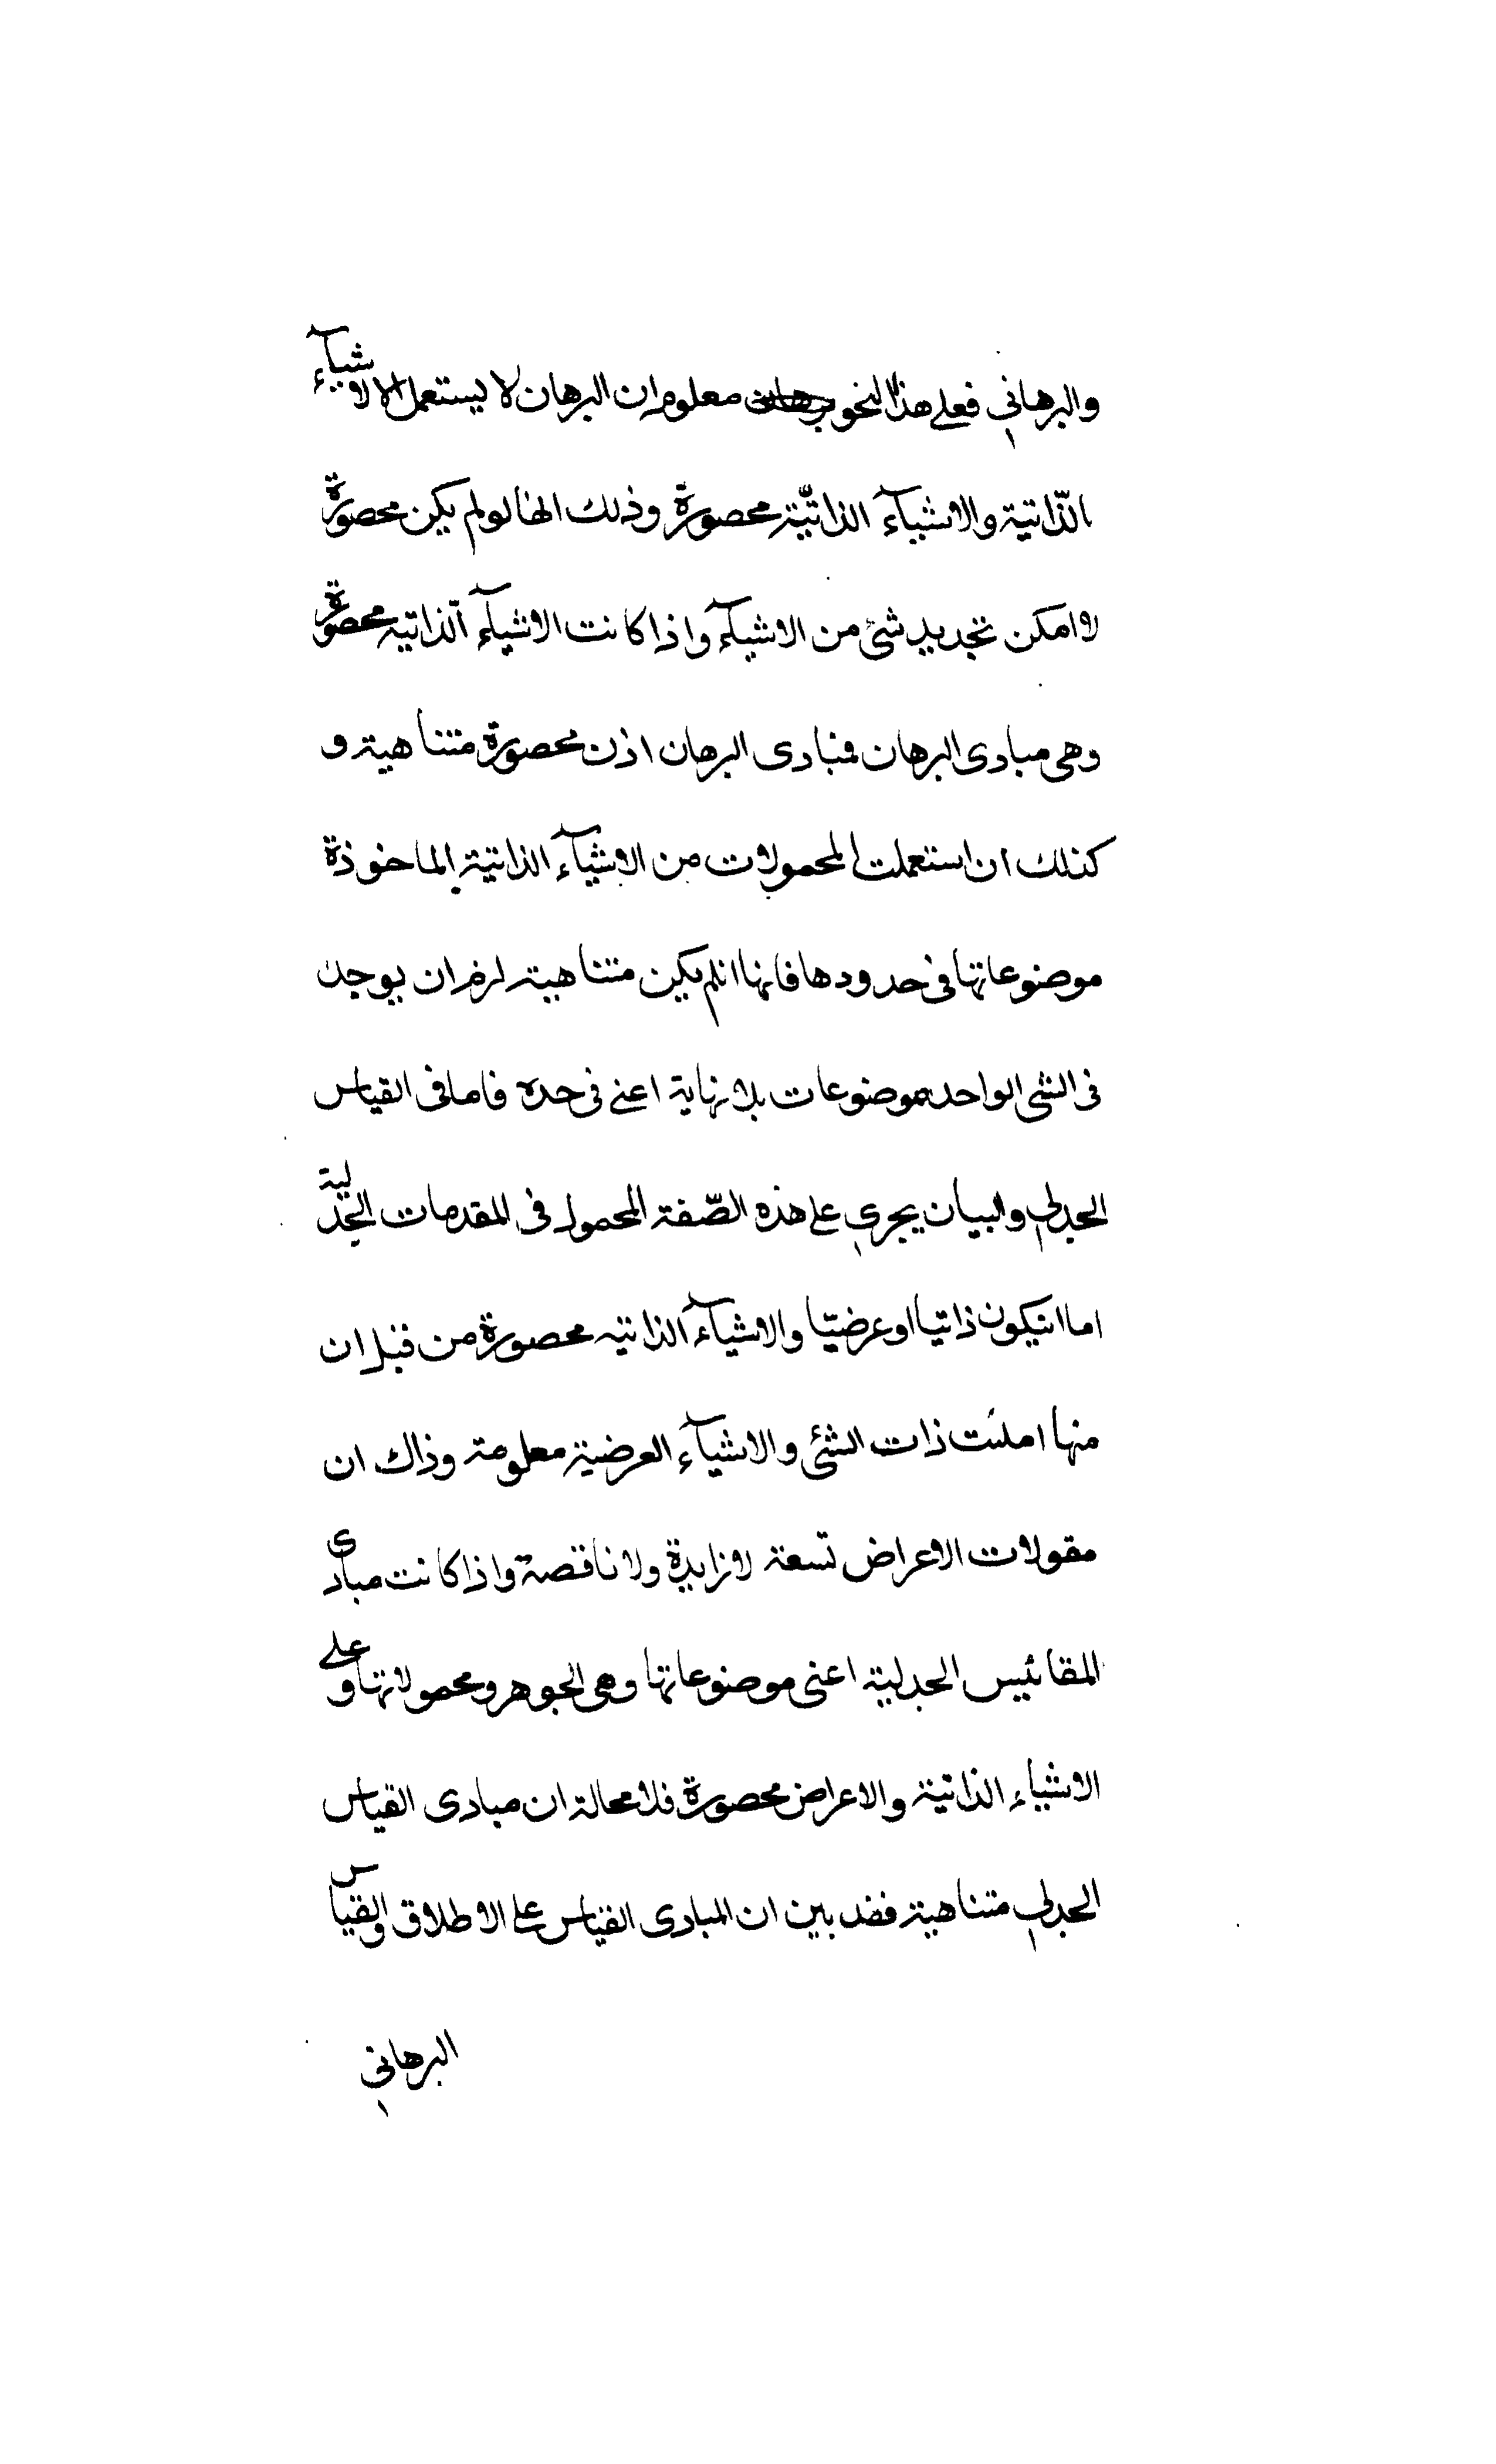 والبرهاني فعلى هذا النحو معلوم ان البرهان لا يستعمل الا الاشيآء
الذّاتية والاشيآء الذاتيّة محصورة وذلك انها لو لم يكن محصورة
لا امكن تحديد شئ من الاشيآء واذا كانت الاشيآء الذاتية محصورة
وهى مبادى البرهان فمبادى البرهان اذن محصورة متناهية و
كذلك ان استعملت المحمولات من الاشيآء الذاتية الماخوذة
موضوعاتها فى حدودها فانها انلم يكن متناهية لزم ان يوجد
فى الشئ الواحد موضوعات بلا نهاية اعنى فى حده فاما فى القياس
الجدلي والبيان يجري على هذه الصّفة المحمول فى المقدمات الجدلية
اما انيكون ذاتيا او عرضيّا والاشيآء الذاتية محصورة من قبل ان
منها ذات الشئ والاشيآء العرضية معلومة وذاك ان
مقولات الاعراض تسعة لا زايدة ولا ناقصة واذا كانت مبادى
المقائيس الجدلية اعنى موضوعاتها وهى الجوهر ومحمولاتها وعلى
الاشياء الذاتية والاعراض محصورة فلا محالة ان مبادى القياس
الجدلي متناهية فقد بين ان المبادى القياس على الاطلاق والقياس
البرهاني